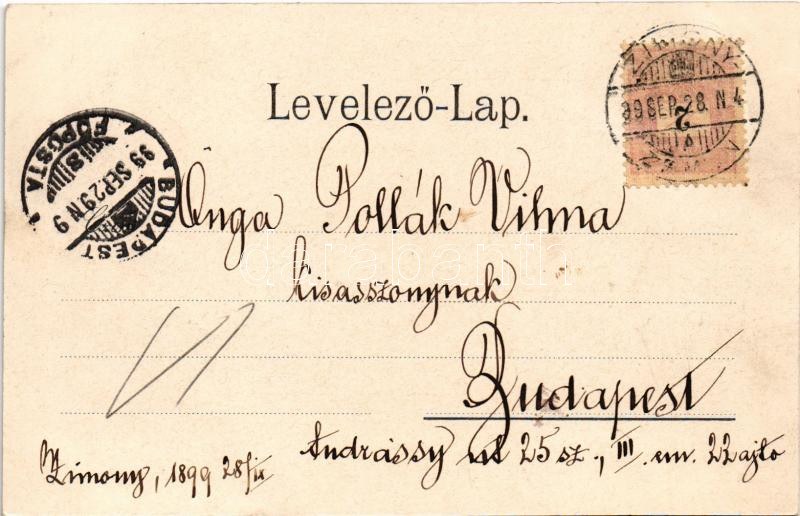 Levelező-Lap.
ZIMONY
99 SEP. 28. N 4
2
BUDAPEST
99 SEP. 29. N 9
FŐPOSTA
Önga Pollák Vilma
kisasszonynak
Budapest
Andrássy út 25 sz., III. em. 22 ajtó
Zimony, 1899 28/IX
darabanth